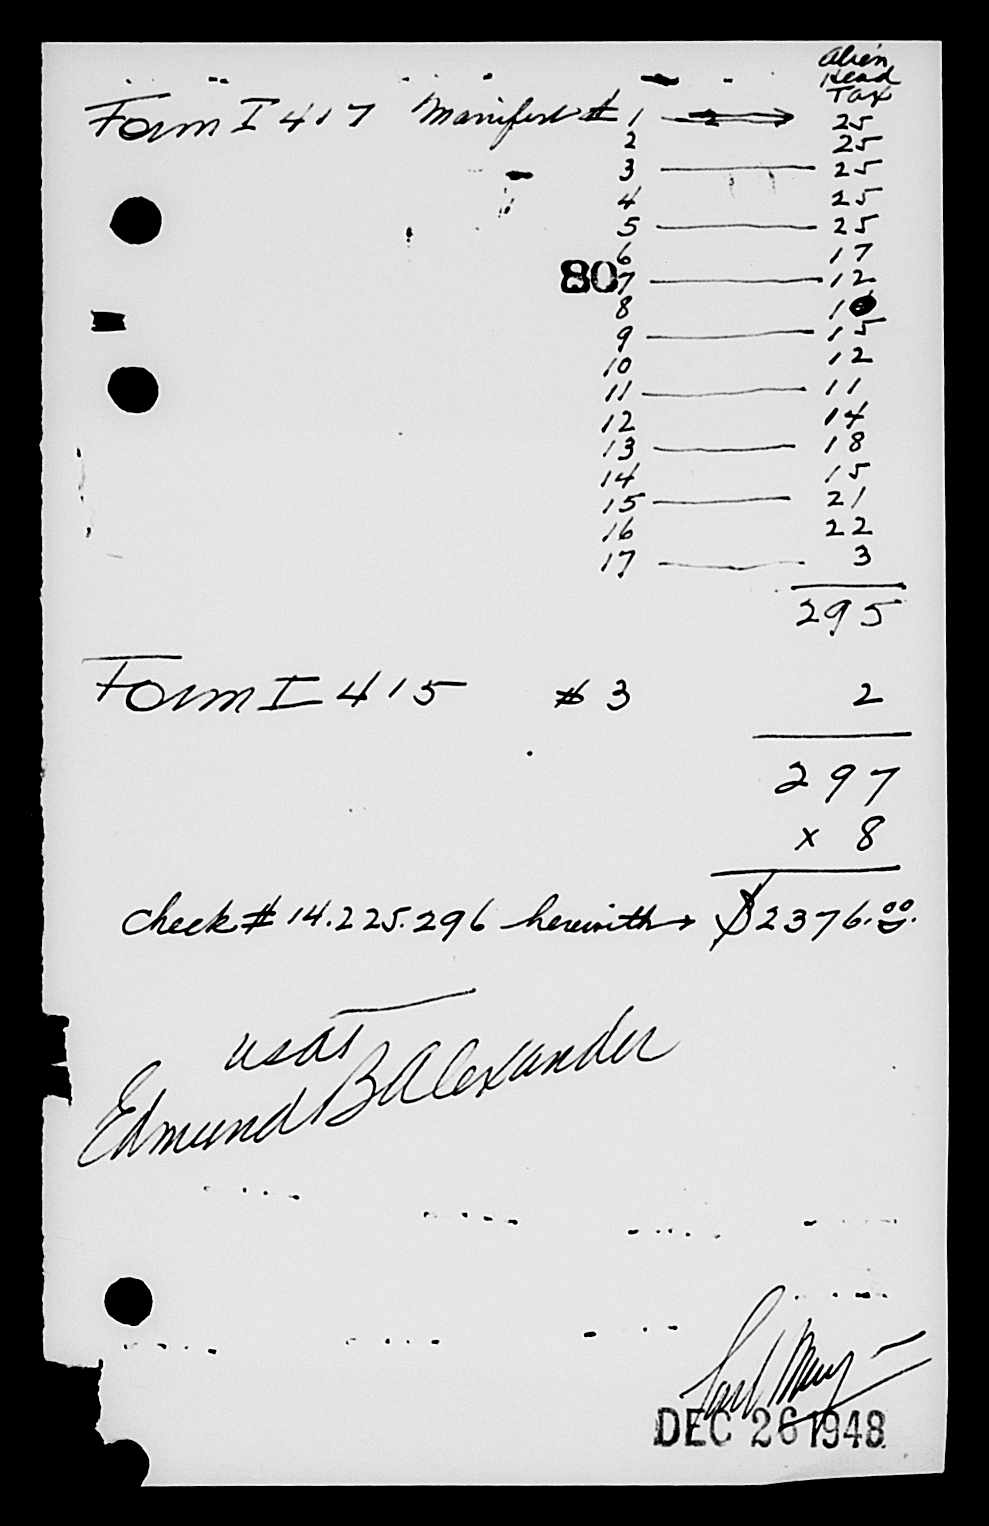 Alien
Head
Tax
Form I 417 Manifest # 1 → 25
2 25
3 — 25
4 25
5 — 25
6 17
80
7 — 12
8 10
9 — 15
10 12
11 — 11
12 14
13 — 18
14 15
15 — 21
16 22
17 — 3
295
Form I 415 # 3 2
297
x 8
Check # 14.225.296 herewith → $2376.00.
USAT
Edmund B Alexander
DEC 26 1948